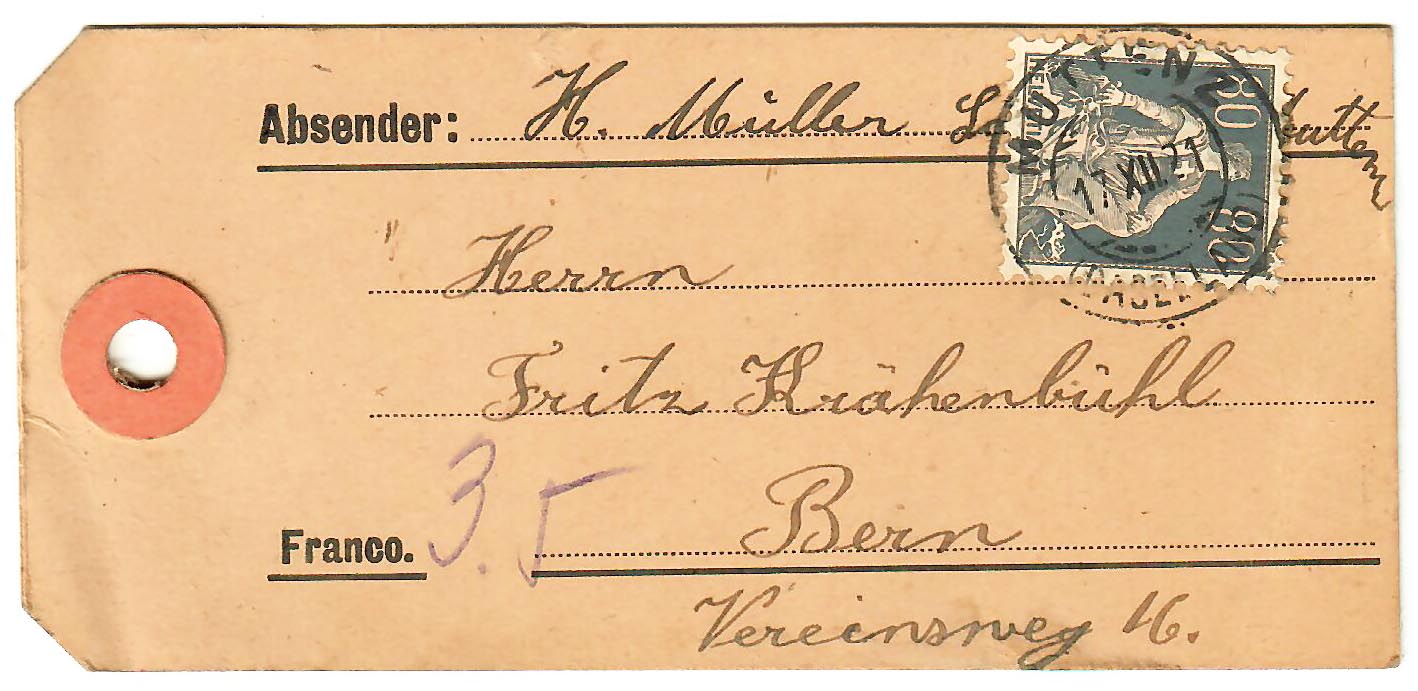 Absender: H. Müller
MUTTENZ
80 80
17.XII.21
(BASELLAND)
Herrn
Fritz Krähenbühl
Franco. 3.5 Bern
Vereinsweg 16.